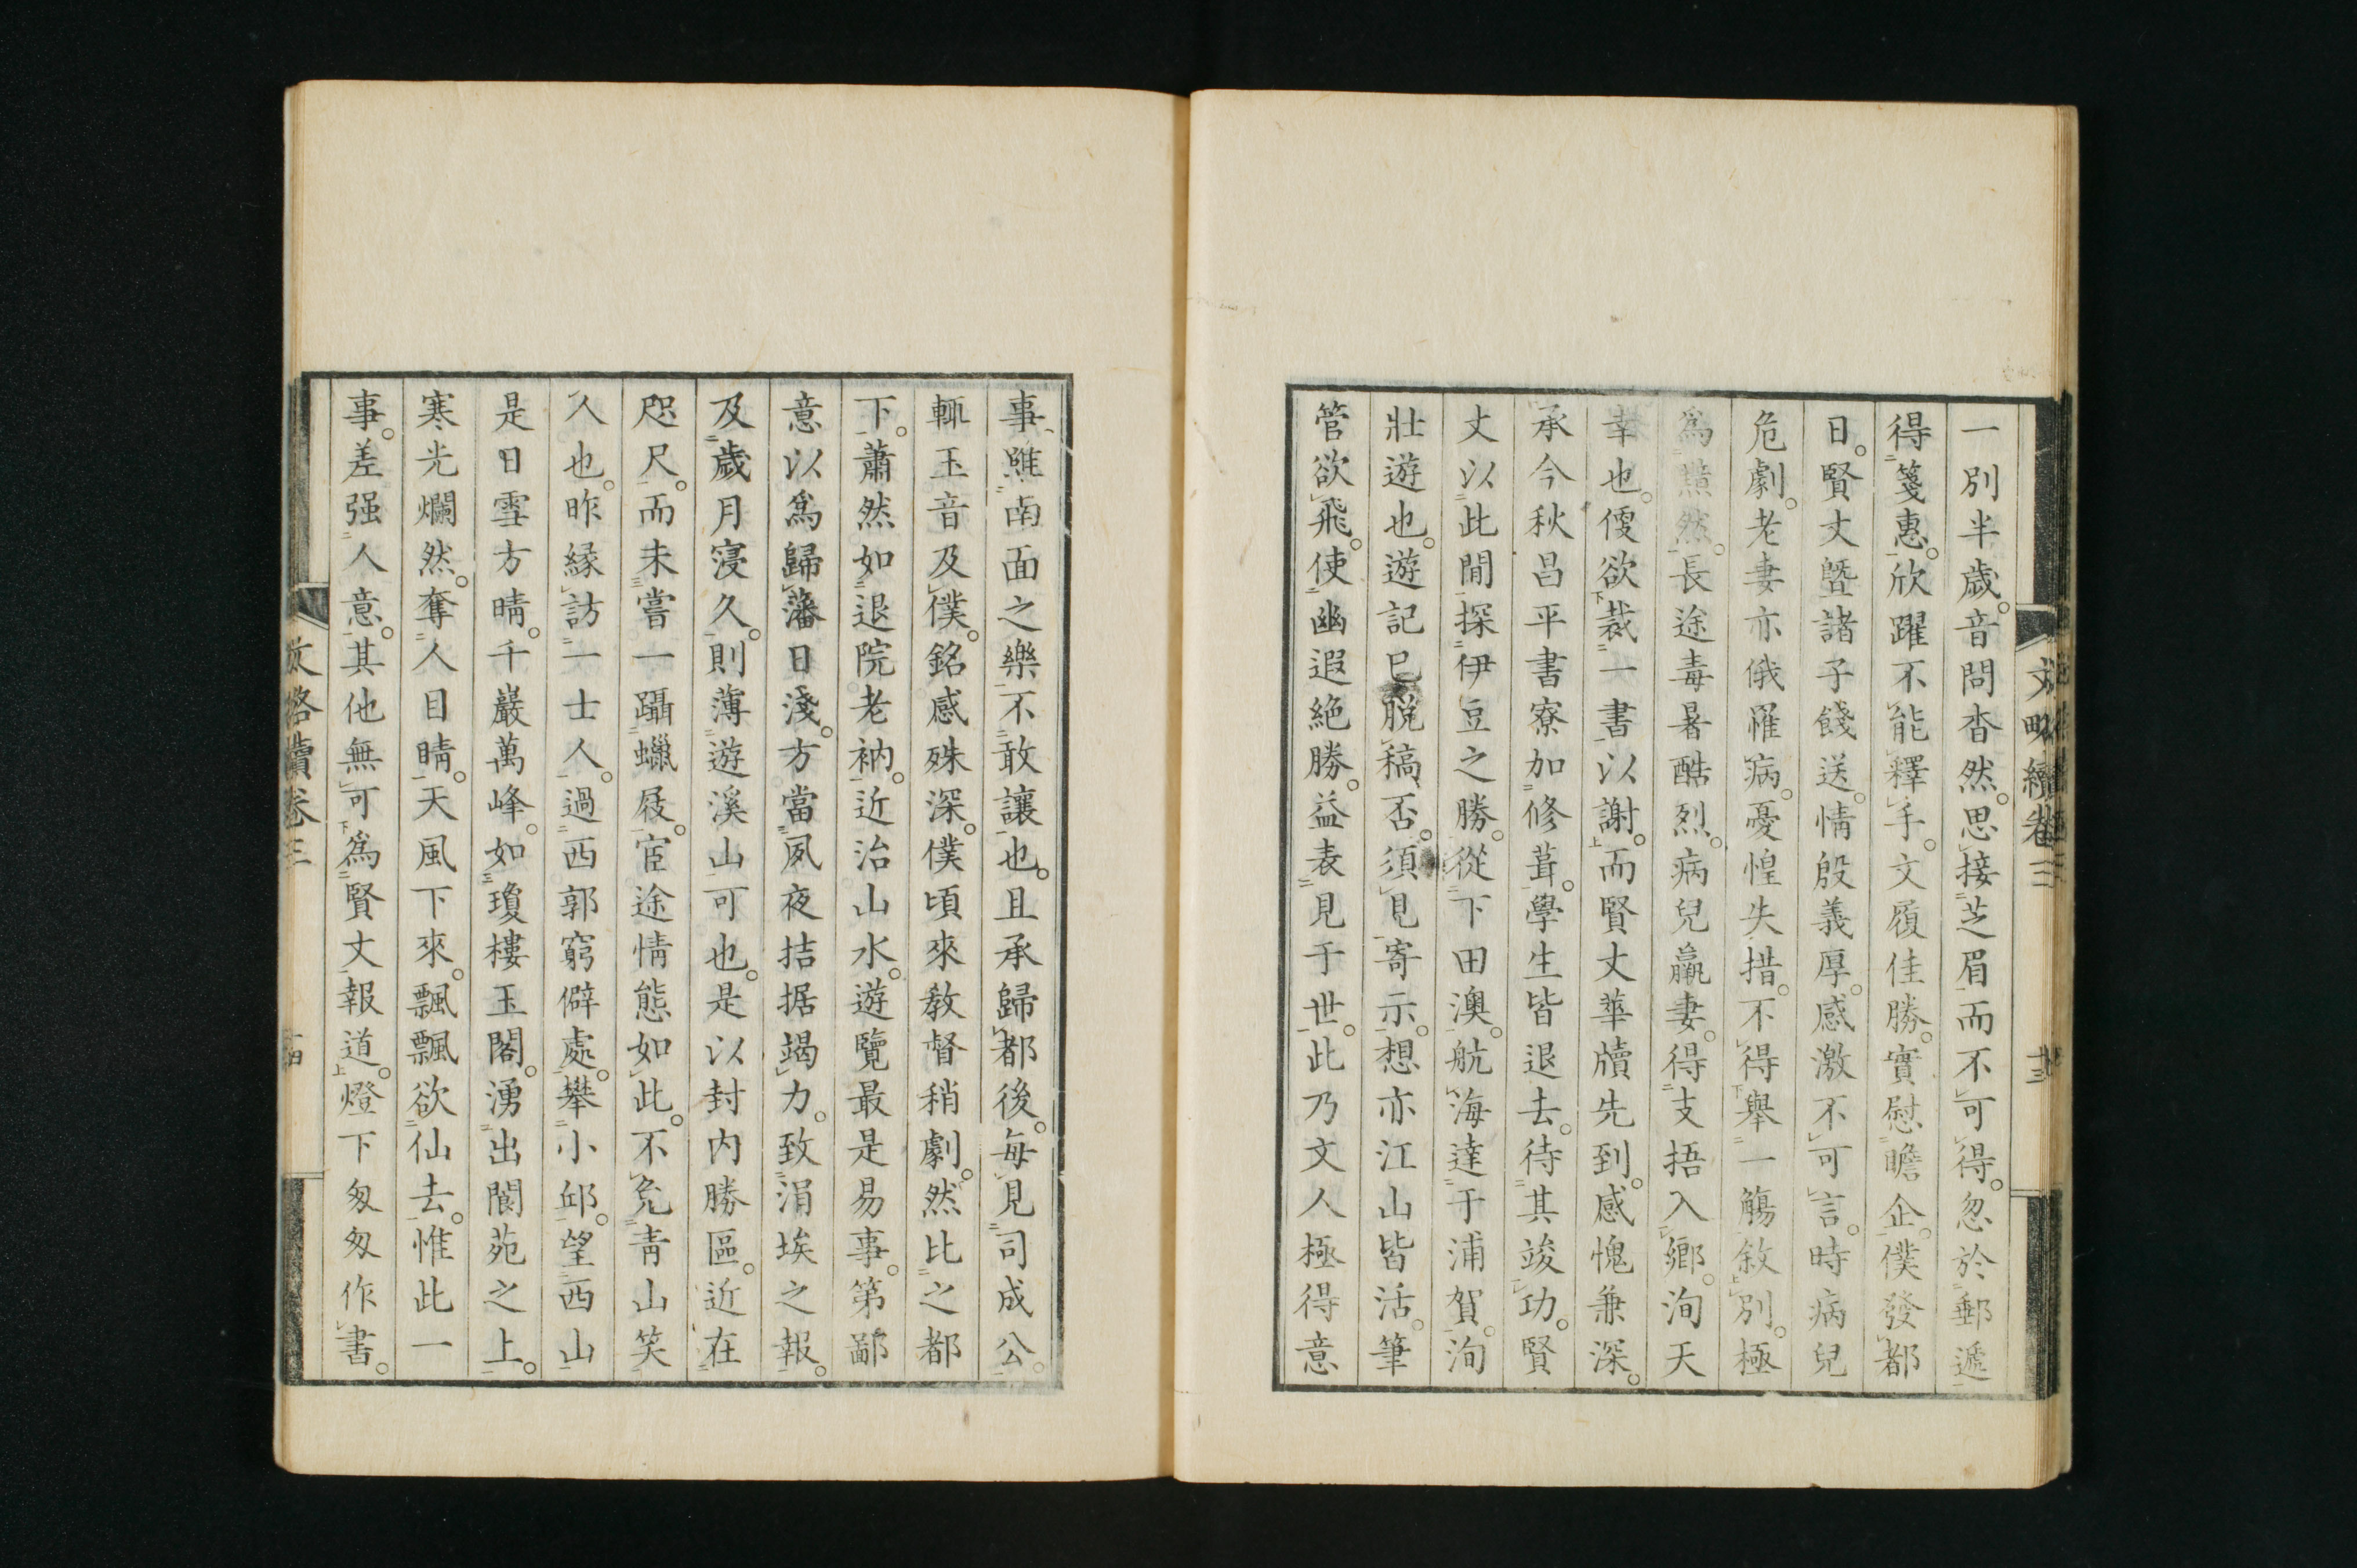 一別半歲。音問杳然。思接芝眉而不可得。忽於郵遞
得箋惠。欣躍不能釋手。文履佳勝。實慰瞻企。僕發都
日。賢丈曁諸子餞送。情殷義厚。感激不可言。時病兒
危劇。老妻亦俄罹病。憂惶失措。不得擧一觴敘別。極
爲黯然。長途毒暑酷烈。病兒羸妻。得支捂入鄉。洵天
幸也。優欲裁一書以謝。而賢丈華牘先到。感愧兼深。
承今秋昌平書寮加修葺。學生皆退去。待其竣功。賢
丈以此閒探伊豆之勝。從下田澳。航海達于浦賀。洵
壯遊也。遊記已脫稿否。須見寄示。想亦江山皆活。筆
管欲飛。使幽遐絶勝。益表見于世。此乃文人極得意
事。雖南面之樂。不敢讓也。且承歸都後。每見司成公。
輒玉音及僕。銘感殊深。僕頃來敎督稍劇。然比之都
下。蕭然如退院老衲。近治山水。遊覽最是易事。第鄙
意以爲歸藩日淺。方當夙夜拮据竭力。致涓埃之報。
及歲月寖久。則薄遊溪山可也。是以封内勝區。近在
咫尺。而未嘗一躡蠟屐。宦途情態如此。不免靑山笑
人也。昨緣訪一士人。過西郭窮僻處。攀小邱。望西山
是日雪方晴。千巖萬峰。如瓊樓玉閣。湧出閬苑之上。
寒光爛然。奪人目睛。天風下來。飄飄欲仙去。惟此一
事。差强人意。其他無可爲賢丈報道。燈下匆匆作書。
文略續卷三
十三
文略續卷三
十四